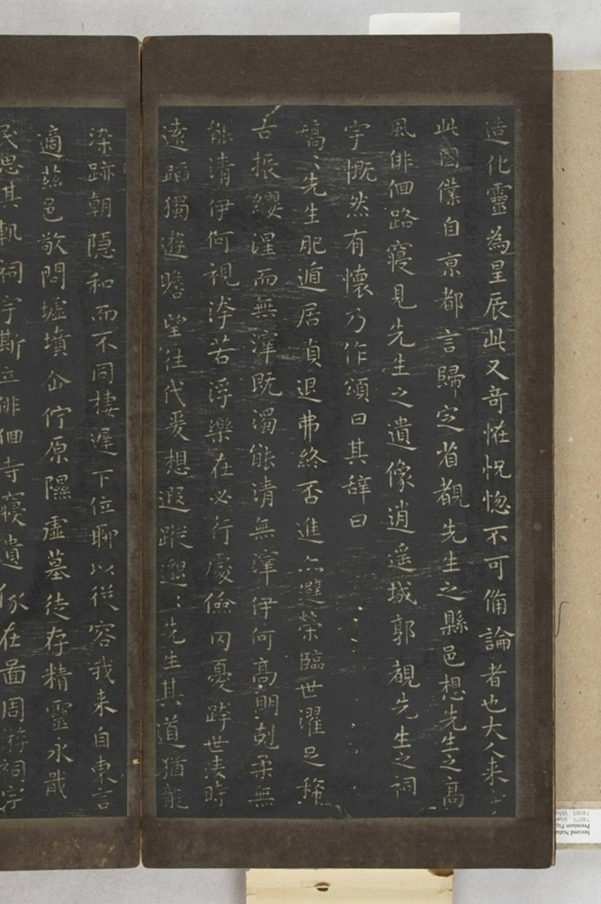 造化靈為星辰此又奇恠怳惚不可備論者也大人来守
此國僕自京都言歸定省覩先生之縣邑想先生之高
風俳佪路寢見先生之遺像逍遥城郭覩先生之祠
宇慨然有懷乃作頌曰其辞曰
矯〻先生肥遁居貞退弗終否進亦避榮臨世濯足稀
古振纓涅而無滓既濁能清無滓伊何高明剋柔無
能清伊何視洿若浮樂在必行處儉罔憂跨世淩時
遠蹈獨遊瞻望往代爰想遐蹤邈〻先生其道猶龍
染跡朝隐和而不同棲遲下位聊以従容我来自東言
適兹邑敬問墟墳企佇原隰虚墓徒存精靈永戢
民思其軌祠宇斯立俳佪寺寢遺像在啚周遊祠宇
Second Natu
Premium Pap